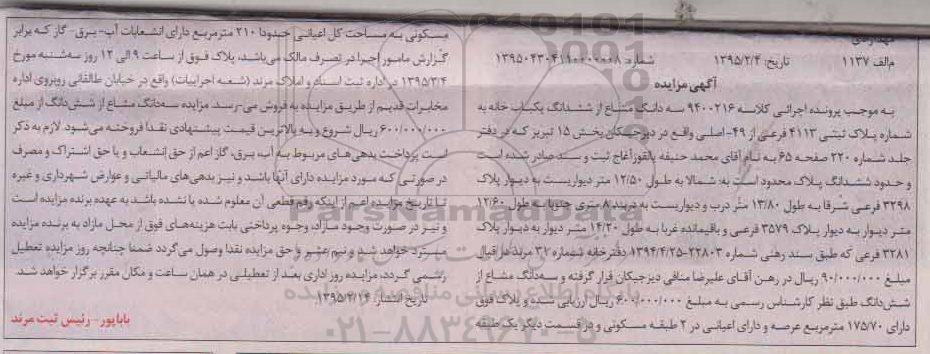 م‌الف ۱۱۳۷ تاریخ: ۱۳۹۵/۲/۴ شماره: ۱۳۹۵۰۴۳۰۴۱۱۰۰۰۰۰۰۸
آگهی مزایده
به موجب پرونده اجرائی کلاسه ۹۴۰۰۲۱۶ سه دانگ مشاع از ششدانگ یکباب خانه به
شماره پلاک ثبتی ۴۱۱۳ فرعی از ۴۹-اصلی واقع در دیزجیکان بخش ۱۵ تبریز که در دفتر
جلد شماره ۲۲۰ صفحه ۶۵ به نام آقای محمد حنیفه یالقوزآغاج ثبت و سند صادر شده است
و حدود ششدانگ پلاک محدود است به: شمالا به طول ۱۲/۵۰ متر دیواریست به دیوار پلاک
۳۲۹۸ فرعی شرقا به طول ۱۳/۸۰ متر درب و دیواریست به دربند ۸ متری جنوبا به طول ۱۲/۶۰
متر دیوار به دیوار پلاک ۳۵۷۹ فرعی و باقیمانده غربا به طول ۱۴/۲۰ متر دیوار به دیوار پلاک
۳۲۸۱ فرعی که طبق سند رهنی شماره ۲۲۸۰۳-۱۳۹۴/۴/۲۵ دفترخانه شماره ۳۷ مرند در قبال
مبلغ ۹۰/۰۰۰/۰۰۰ ریال در رهن آقای علیرضا منافی دیزجیکان قرار گرفته و سه‌دانگ مشاع از
شش‌دانگ طبق نظر کارشناس رسمی به مبلغ ۶۰۰/۰۰۰/۰۰۰ ریال ارزیابی شده و پلاک فوق
دارای ۱۷۵/۷۰ مترمربع عرصه و دارای اعیانی در ۲ طبقه مسکونی و در قسمت دیگر یک طبقه
مسکونی به مساحت کل اعیانی حدودا ۲۱۰ مترمربع دارای انشعابات آب-برق-گاز که برابر
گزارش مامور اجرا در تصرف مالک می‌باشد، پلاک فوق از ساعت ۹ الی ۱۲ روز سه‌شنبه مورخ
۱۳۹۵/۳/۴ در اداره ثبت اسناد و املاک مرند (شعبه اجرائیات) واقع در خیابان طالقانی روبروی اداره
مخابرات قدیم از طریق مزایده به فروش می‌رسد. مزایده سه‌دانگ مشاع از شش‌دانگ از مبلغ
۶۰۰/۰۰۰/۰۰۰ ریال شروع و به بالاترین قیمت پیشنهادی نقدا فروخته می‌شود. لازم به ذکر
است پرداخت بدهی‌های مربوط به آب، برق، گاز اعم از حق انشعاب و یا حق اشتراک و مصرف
در صورتی که مورد مزایده دارای آنها باشد و نیز بدهی‌های مالیاتی و عوارض شهرداری و غیره
تا تاریخ مزایده اعم از اینکه رقم قطعی آن معلوم شده یا نشده باشد به عهده برنده مزایده است
و نیز در صورت وجود مازاد، وجوه پرداختی بابت هزینه‌های فوق از محل مازاد به برنده مزایده
مسترد خواهد شد و نیم عشر و حق مزایده نقدا وصول می‌گردد ضمنا چنانچه روز مزایده تعطیل
رسمی گردد، مزایده روز اداری بعد از تعطیلی در همان ساعت و مکان مقرر برگزار خواهد شد.
تاریخ انتشار: ۱۳۹۵/۲/۱۴
باباپور-رئیس ثبت مرند
ParsNamadData
پایگاه اطلاع رسانی مناقصه و مزایده
۰۲۱-۸۸۳۴۹۶۷۰-۵